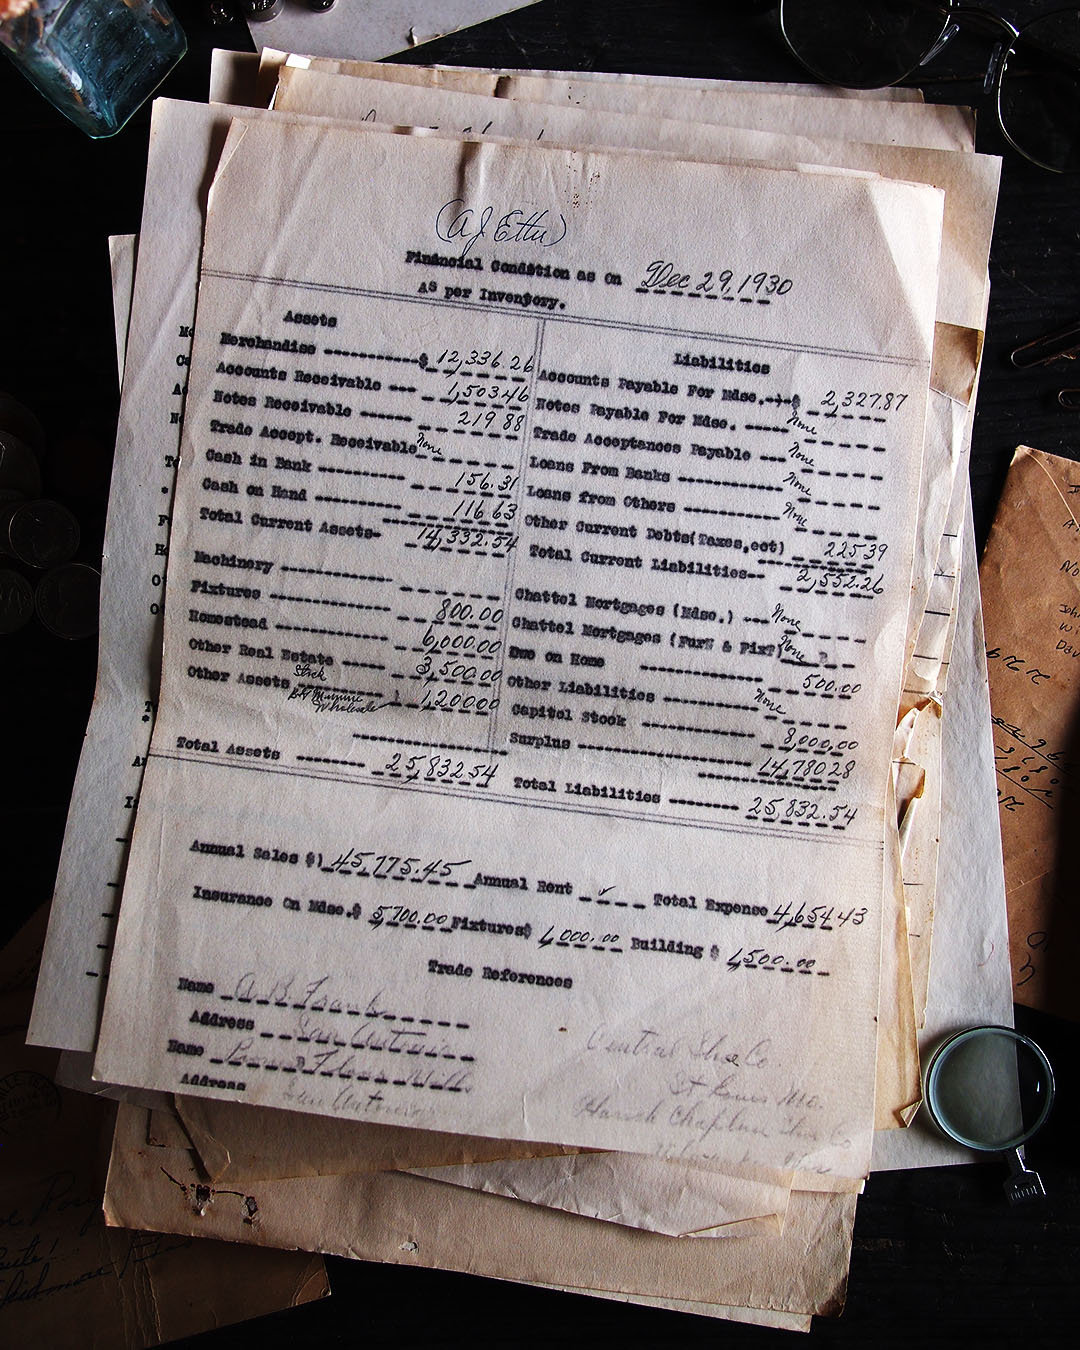 (A J Ettu)
Financial Condition as On Dec 29, 1930
As per Inventory.
Assets
Merchandise $ 12,336.26
Accounts Receivable 1,503.46
Notes Receivable 219 88
Trade Accept. Receivable None
Cash in Bank 156.31
Cash on Hand 116 63
Total Current Assets- 14,332.54
Machinery
Fixtures 800.00
Homestead 6,000.00
Other Real Estate 3,500.00
Other Assets Stock Wholesale 1,200.00
Total Assets 25,832 54
Liabilities
Accounts Payable For Mdse. $ 2,327.87
Notes Payable For Mdse. None
Trade Acceptances Payable None
Loans From Banks None
Loans from Others None
Other Current Debts(Taxes,ect) 225 39
Total Current Liabilities-- 2,552.26
Chattel Mortgages (Mdse.) None
Chattel Mortgages (Furn & Fix) None
Due on Home 500.00
Other Liabilities None
Capitol Stock 8,000,00
Surplus 14,780 28
Total Liabilities 25,832.54
Annual Sales $) 45,775.45 Annual Rent ✓ Total Expense 4,654 43
Insurance On Mdse.$ 5,700.00 Fixtures$ 1,000.00 Building $ 1,500.00
Trade References
Name A. B. Frank
Address San Antonio
Name Pioneer Flour Mills
Address San Antonio
Central Shoe Co
St Louis Mo.
Harsh Chapline Shoe Co